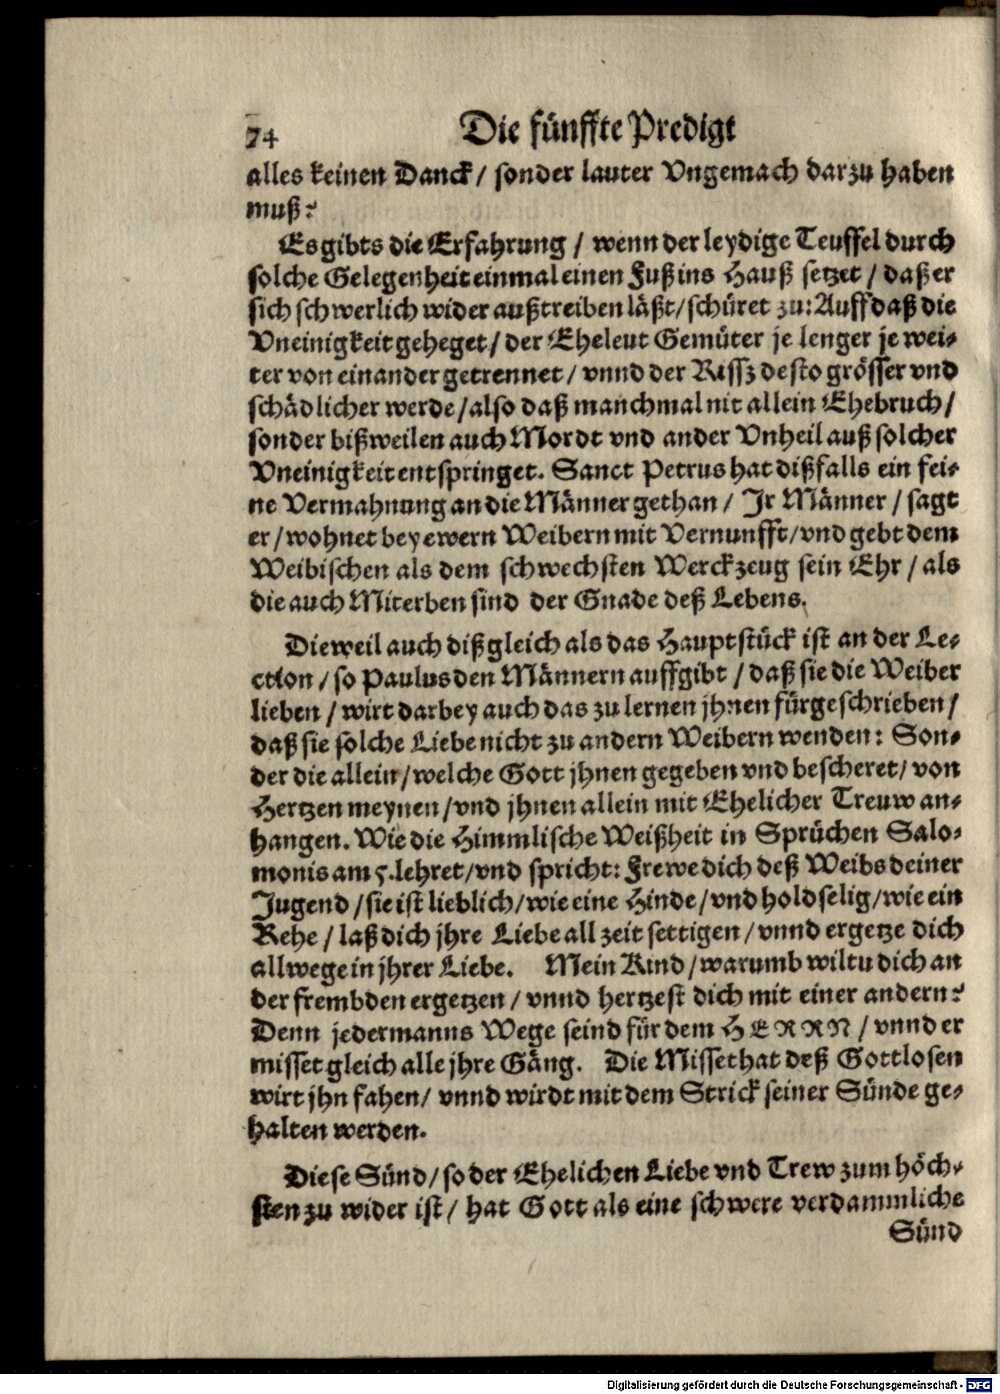 74 Die fünffte Predigt
alles keinen Danck / sonder lauter Vngemach darzu haben
muß?
Es gibts die Erfahrung / wenn der leydige Teuffel durch
solche Gelegenheit einmal einen Fuß ins Hauß setzet / daß er
sich schwerlich wider außtreiben läßt / schüret zu: Auff daß die
Vneinigkeit geheget / der Eheleut Gemüter je lenger je wei-
ter von einander getrennet / vnnd der Rissz desto grösser vnd
schädlicher werde / also daß manchmal nit allein Ehebruch /
sonder bißweilen auch Mordt vnd ander Vnheil auß solcher
Vneinigkeit entspringet. Sanct Petrus hat dißfalls ein fei-
ne Vermahnung an die Männer gethan / Jr Männer / sagt
er / wohnet bey ewern Weibern mit Vernunfft / vnd gebt dem
Weibischen als dem schwechsten Werckzeug sein Ehr / als
die auch Miterben sind der Gnade deß Lebens.
Dieweil auch diß gleich als das Hauptstück ist an der Le-
ction / so Paulus den Männern auffgibt / daß sie die Weiber
lieben / wirt darbey auch das zu lernen jhnen fürgeschrieben /
daß sie solche Liebe nicht zu andern Weibern wenden: Son-
der die allein / welche Gott jhnen gegeben vnd bescheret / von
Hertzen meynen / vnd jhnen allein mit Ehelicher Treuw an-
hangen. Wie die Himmlische Weißheit in Sprüchen Salo-
monis am 5. lehret / vnd spricht: Frewe dich deß Weibs deiner
Jugend / sie ist lieblich / wie eine Hinde / vnd holdselig / wie ein
Rehe / laß dich jhre Liebe all zeit settigen / vnnd ergetze dich
allwege in jhrer Liebe. Mein Kind / warumb wiltu dich an
der frembden ergetzen / vnnd hertzest dich mit einer andern?
Denn jedermanns Wege seind für dem HERRN / vnnd er
misset gleich alle jhre Gäng. Die Missethat deß Gottlosen
wirt jhn fahen / vnnd wirdt mit dem Strick seiner Sünde ge-
halten werden.
Diese Sünd / so der Ehelichen Liebe vnd Trew zum höch-
sten zu wider ist / hat Gott als eine schwere verdammliche
Sünd
Digitalisierung gefördert durch die Deutsche Forschungsgemeinschaft - DFG